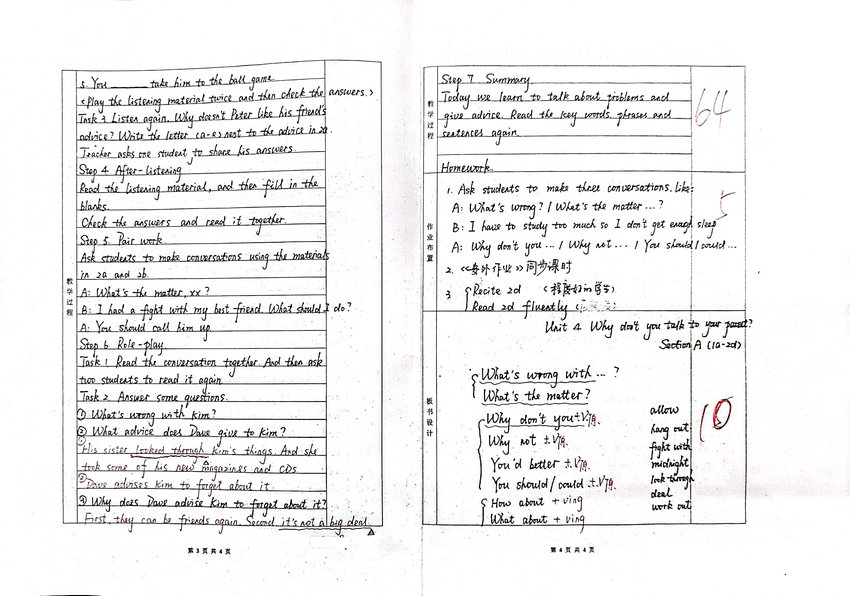 5. You ______ take him to the ball game
<Play the listening material twice and then check the answers.>
Task 3 Listen again. Why doesn't Peter like his friend's
advice? Write the letter (a-e) next to the advice in 2a.
Teacher asks one student to share his answers.
Step 4 After-listening
Read the listening material, and then fill in the
blanks.
Check the answers and read it together.
Step 5. Pair work
Ask students to make conversations using the materials
in 2a and 2b.
A: What's the matter, xx?
B: I had a fight with my best friend. What should I do?
A: You should call him up
Step 6 Role-play.
Task 1 Read the conversation together. And then ask
two students to read it again
Task 2 Answer some questions.
① What's wrong with Kim?
② What advice does Dave give to Kim?
① His sister looked through Kim's things. And she
took some of his new magazines and CDs
② Dave advises Kim to forget about it.
③ Why does Dave advise Kim to forget about it?
First, they can be friends again. Second it's not a big deal.
教学过程
第 3 页 共 4 页
教学过程
Step 7 Summary.
Today we learn to talk about problems and
give advice. Read the key words, phrases and
sentences again.
64
Homework.
作业布置
1. Ask students to make three conversations. like:
A: What's wrong? / What's the matter...?
B: I have to study too much so I don't get enough sleep
A: Why don't you... / Why not... / You should / could...
5
2. 《课外作业》同步课时
3 Recite 2d (程度好的学生)
Read 2d fluently
板书设计
Unit 4 Why don't you talk to your parent?
Section A (1a-2d)
What's wrong with...?
What's the matter?
Why don't you + V原.
Why not + V原
You'd better + V原.
You should / could + V原.
How about + ving
What about + ving
allow
hang out
fight with
midnight
look through
deal
work out
10
第 4 页 共 4 页